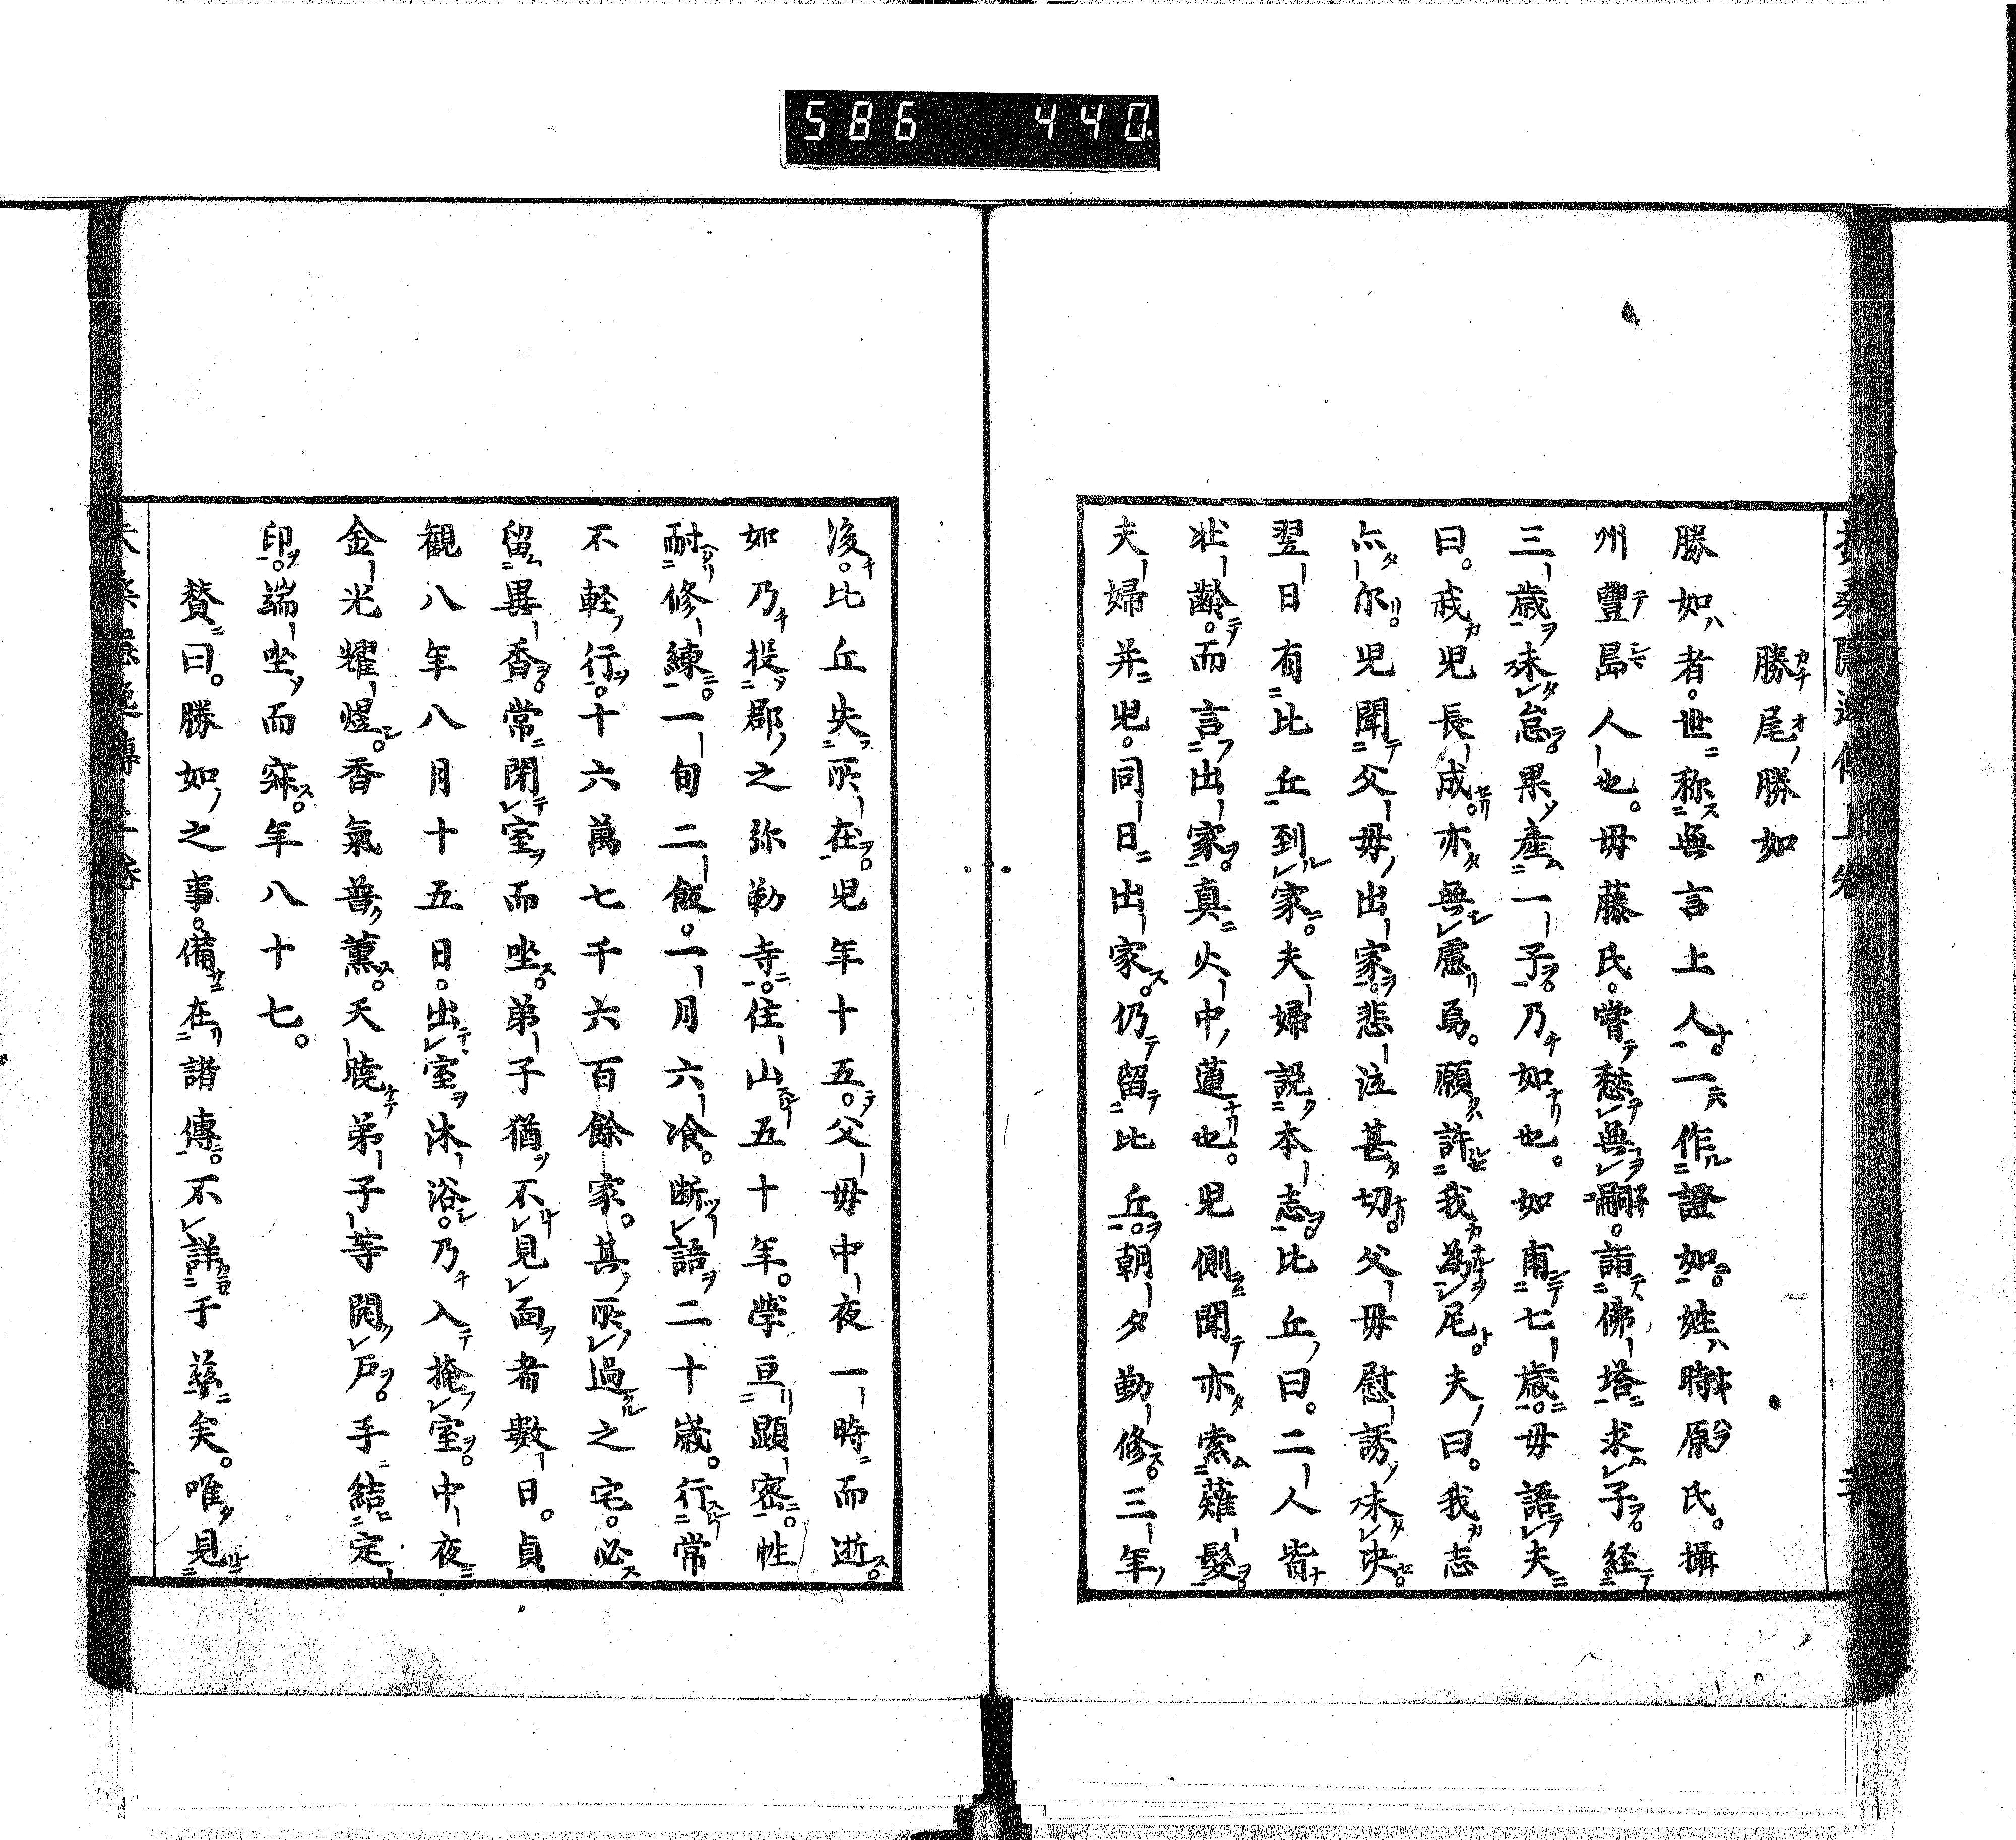 586 440
扶桑隱逸傳上卷
勝尾勝如
勝如者。世称無言上人。一作證如。姓時原氏。攝
州豐島人也。毋藤氏。嘗愁無嗣。詣佛塔求子。経
三歳未怠。果產一子。乃如也。如甫七歳。毋語夫
曰。我児長成。亦無慮焉。願許我為尼。夫曰。我志
亦尔。児聞父毋出家。悲泣甚切。父毋慰誘。未决。
翌日有比丘到家。夫婦説本志。比丘曰。二人皆
壮齢。而言出家。真火中蓮也。児側聞亦索薙髮。
夫婦并児。同日出家。仍留比丘。朝夕勤修。三年
後。比丘失所在。児年十五。父毋中夜一時而逝。
如乃投郡之弥勒寺。住山五十年。學亘顯密。性
耐修練。一旬二飯。一月六飡。断語二十歳。行常
不軽行。十六萬七千六百餘家。其所過之宅。必
留異香。常閉室而坐。弟子猶不見面者數日。貞
観八年八月十五日。出室沐浴。乃入掩室。中夜
金光燿煜。香氣普薰。天曉弟子等関戸。手結定
印。端坐而寂。年八十七。
贊曰。勝如之事。備在諸傳。不詳于兹矣。唯見